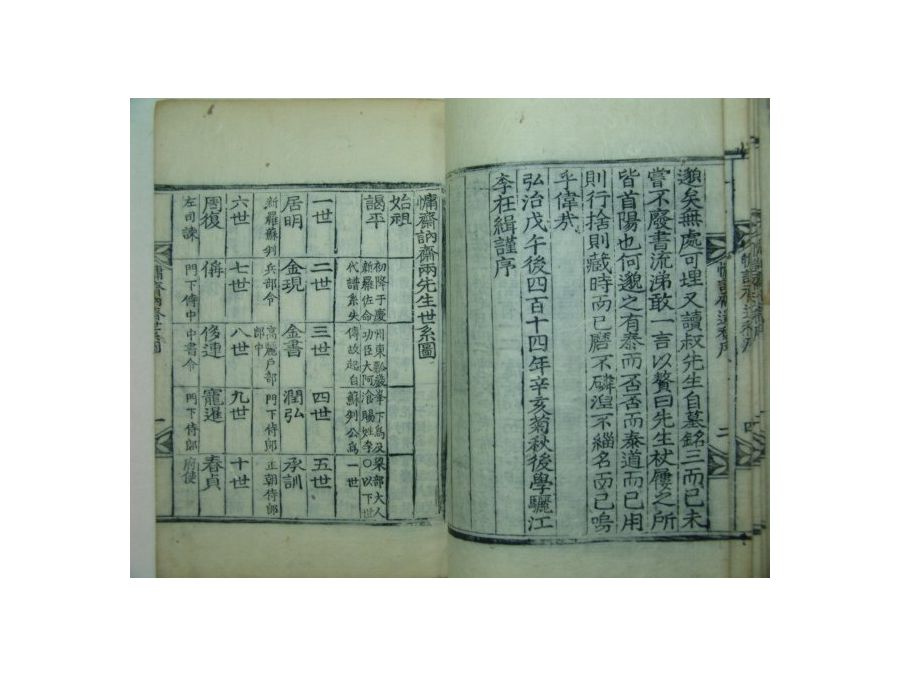 邈矣無處可埋又讀叔先生自墓銘三而已未
嘗不廢書流涕敢一言以贅曰先生杖屨之所
皆首陽也何邈之有泰而否否而泰道而已用
則行捨則藏時而已磨不磷湼不緇名而已嗚
乎偉㦲
弘治戊午後四百十四年辛亥菊秋後學驪江
李在緝謹序
慵齋訥齋兩先生世系圖
始祖
謁平
初降于慶州東瓢巖峯下爲及梁部大人
新羅佐命功臣大阿飡賜姓李〇以下世
代譜系失傳故起自蘇判公爲一世
一世 二世 三世 四世 五世
居明 金現 金書 潤弘 承訓
新羅蘇判 兵部令 高麗戶部郎中 門下侍郎 正朝侍郎
六世 七世 八世 九世 十世
周復 偁 侈連 寵暹 春貞
左司諫 門下侍中 中書令 門下侍郎 府使